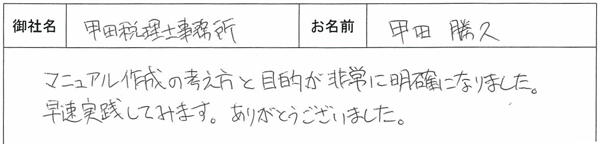 御社名 甲田税理士事務所 お名前 甲田 勝久
マニュアル作成の考え方と目的が非常に明確になりました。
早速実践してみます。ありがとうございました。